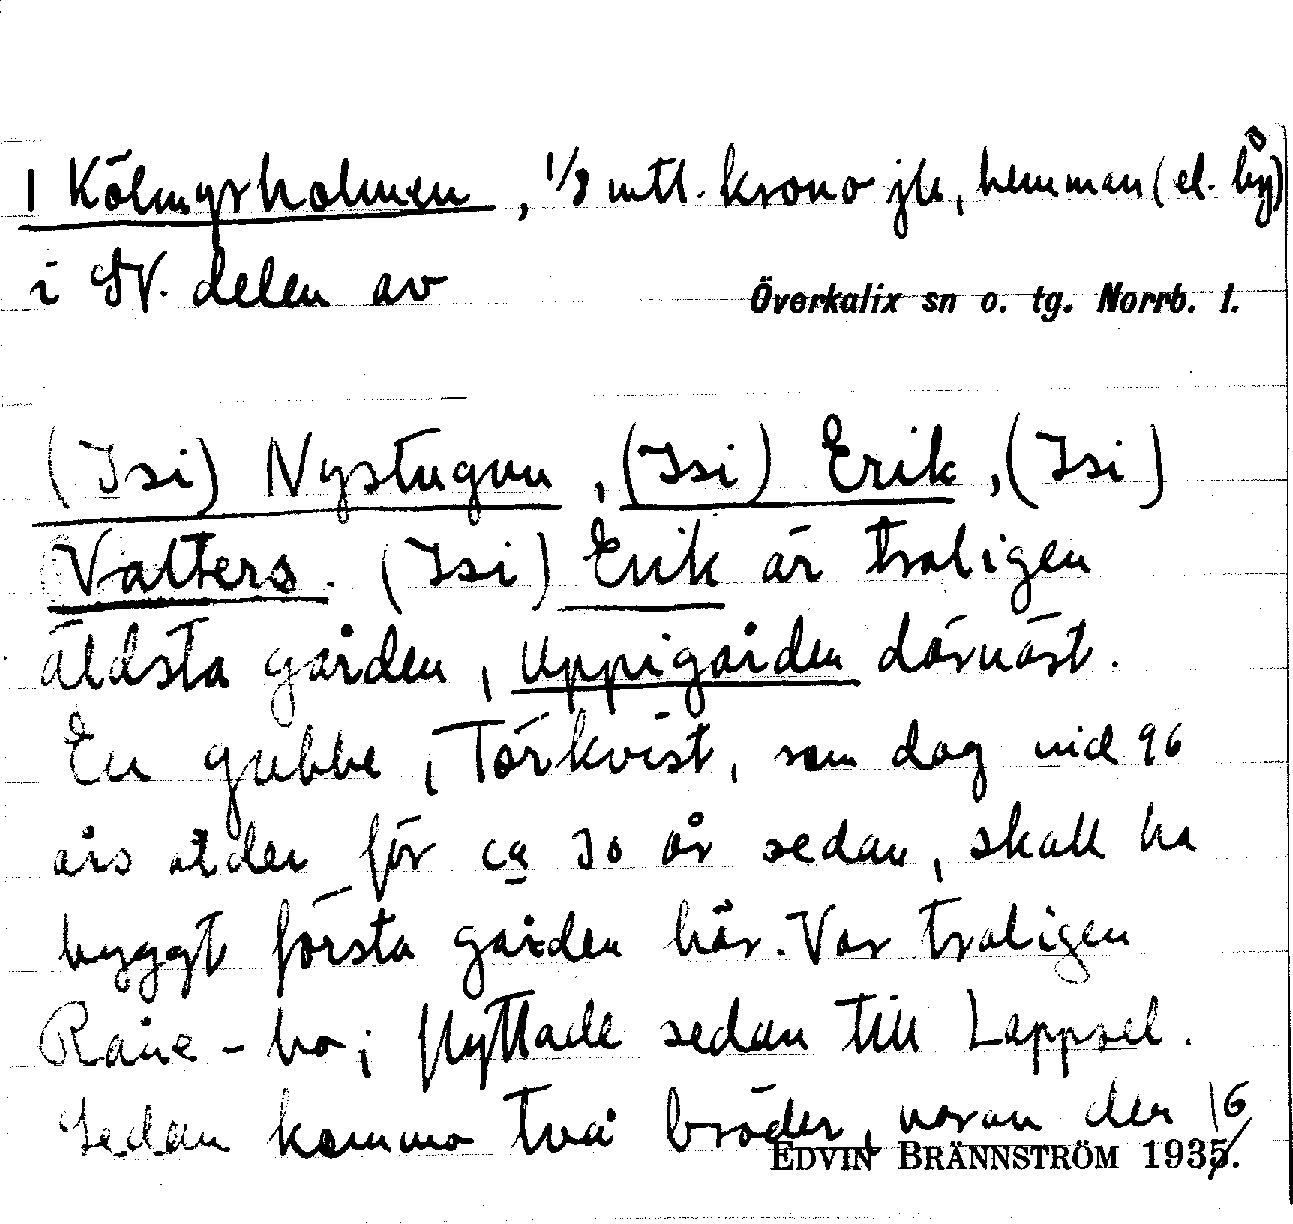 1 Kölmjärholmen, 1/8 mtl. krono jte, hemman (el. by)
i SV. delen av Överkalix sn o. tg. Norrb. l.
(Isi) Nystugun, (Isi) Erik, (Isi)
Valters. (Isi) Erik är troligen
äldsta gården, Uppigården därnäst.
En gubbe, Törkvist, som dog vid 96
års ålder för ca 30 år sedan, skall ha
byggt första gården här. Var troligen
Råne-bo; flyttade sedan till Lappsel.
Sedan kommo två bröder, varan der 16
EDVIN BRÄNNSTRÖM 1935.